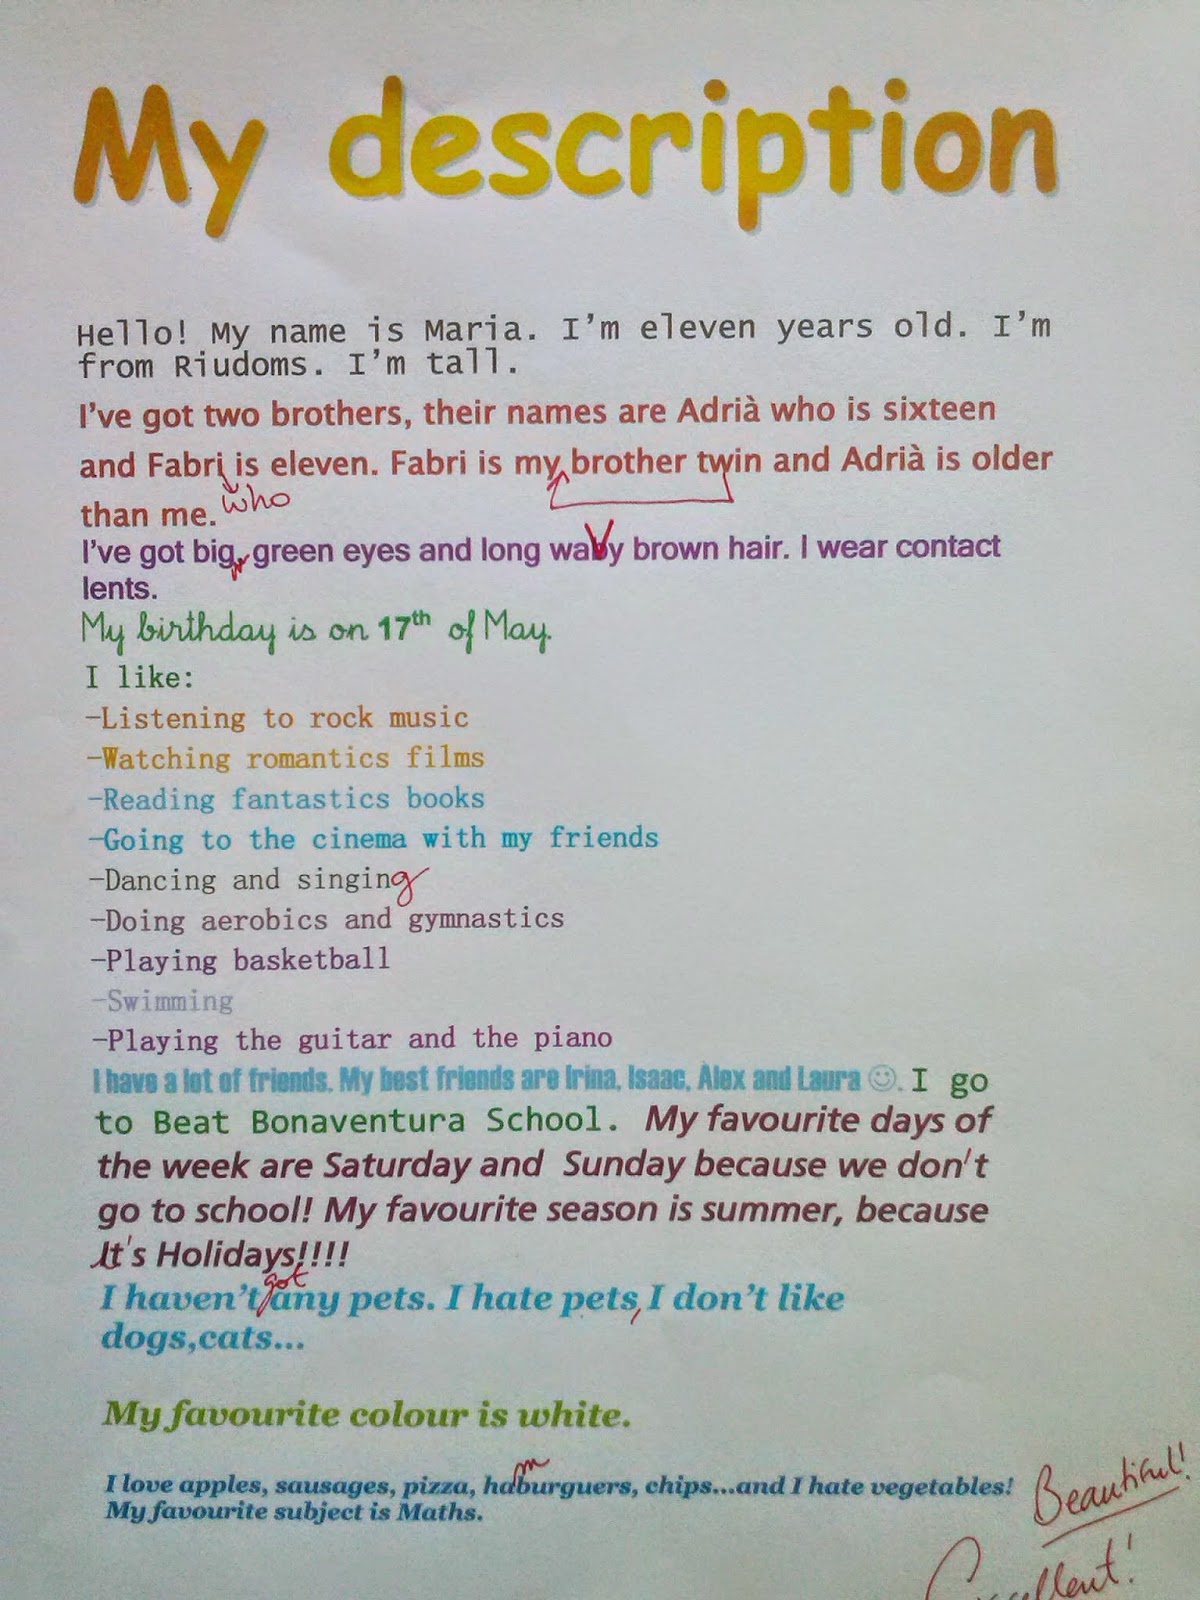 My description
Hello! My name is Maria. I'm eleven years old. I'm
from Riudoms. I'm tall.
I've got two brothers, their names are Adrià who is sixteen
and Fabri is eleven. Fabri is my brother twin and Adrià is older
who
than me.
I've got big, green eyes and long wavy brown hair. I wear contact
lents.
My birthday is on 17th of May.
I like:
-Listening to rock music
-Watching romantics films
-Reading fantastics books
-Going to the cinema with my friends
-Dancing and singing
-Doing aerobics and gymnastics
-Playing basketball
-Swimming
-Playing the guitar and the piano
I have a lot of friends. My best friends are Irina, Isaac, Alex and Laura ☺. I go
to Beat Bonaventura School. My favourite days of
the week are Saturday and Sunday because we don't
go to school! My favourite season is summer, because
It's Holidays!!!!
got
I haven't any pets. I hate pets, I don't like
dogs,cats...
My favourite colour is white.
m
I love apples, sausages, pizza, haburguers, chips...and I hate vegetables!
My favourite subject is Maths.
Beautiful!
Excellent!